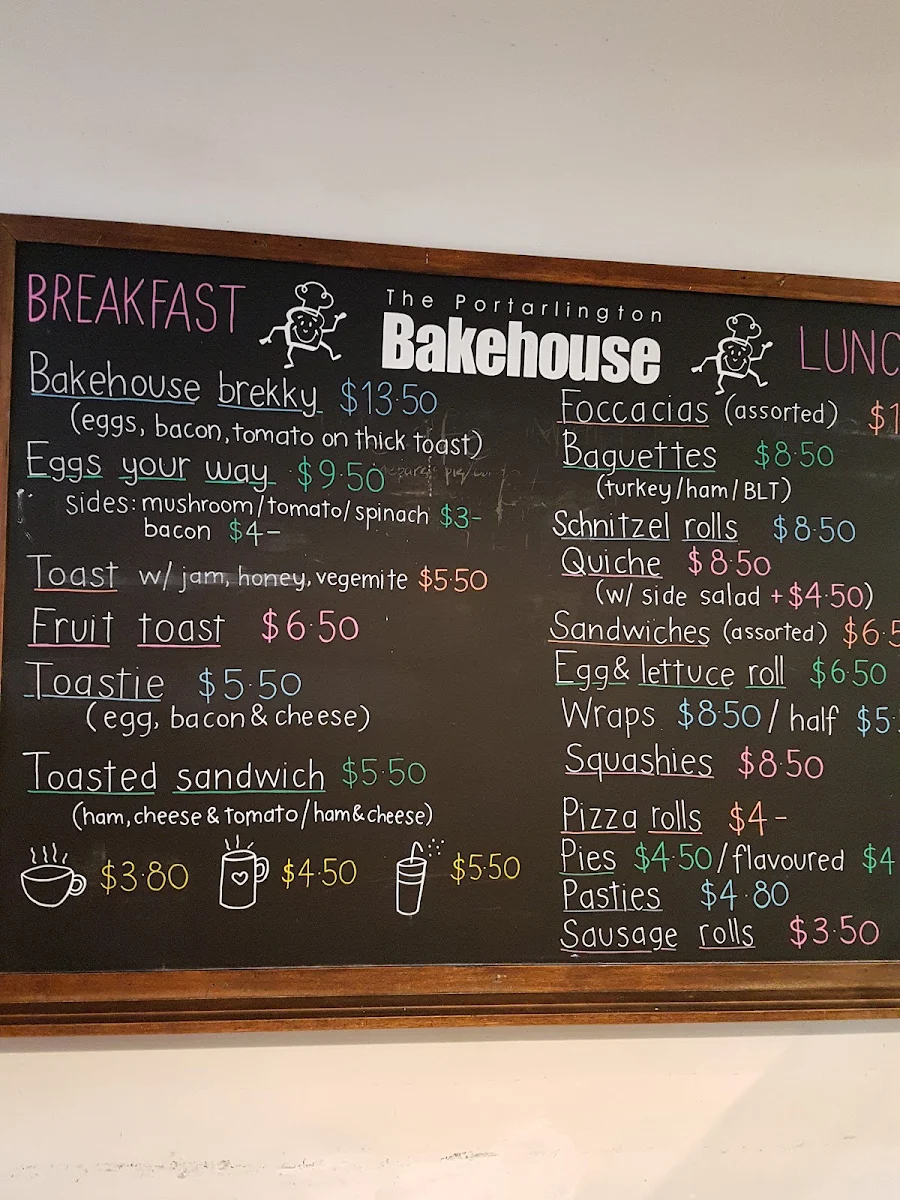 BREAKFAST
The Portarlington
Bakehouse
Bakehouse brekky $13.50
(eggs, bacon, tomato on thick toast)
Eggs your way $9.50
sides: mushroom/tomato/spinach $3-
bacon $4-
Toast w/ jam, honey, vegemite $5.50
Fruit toast $6.50
Toastie $5.50
(egg, bacon & cheese)
Toasted sandwich $5.50
(ham, cheese & tomato/ham & cheese)
$3.80 $4.50 $5.50
LUNC
Foccacias (assorted) $1
Baguettes $8.50
(turkey/ham/BLT)
Schnitzel rolls $8.50
Quiche $8.50
(w/ side salad +$4.50)
Sandwiches (assorted) $6.5
Egg & lettuce roll $6.50
Wraps $8.50/half $5.
Squashies $8.50
Pizza rolls $4-
Pies $4.50/flavoured $4
Pasties $4.80
Sausage rolls $3.50